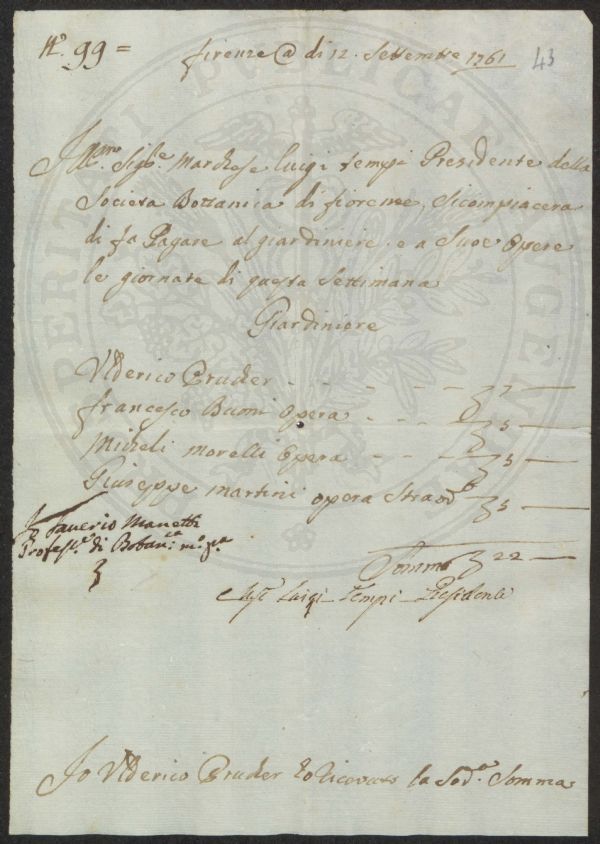 N.º 99 =
firenze @ di 12. Settembre 1761
43
Ill.mo Sig.re Marchese Luigi Tempi Presidente della
Societa Bottanica di fiorenze, si compiacera
di fa Pagare al giardiniere e a Suoe Opere
le giornate di questa Settimana
Giardiniere
Ulderico Pruder - - - - - 7 —
francesco Buoni Opera - - - 5 —
Micheli Morelli Opera - - - 5 —
Giuseppe Martini opera Straord.a 5 —
Somma 22 —
Io Saverio Manetti
Profess.e di Botan.ca m.o p.a
Luigi Tempi Presidente
Io Ulderico Pruder o ricevuto la Sod.a Somma